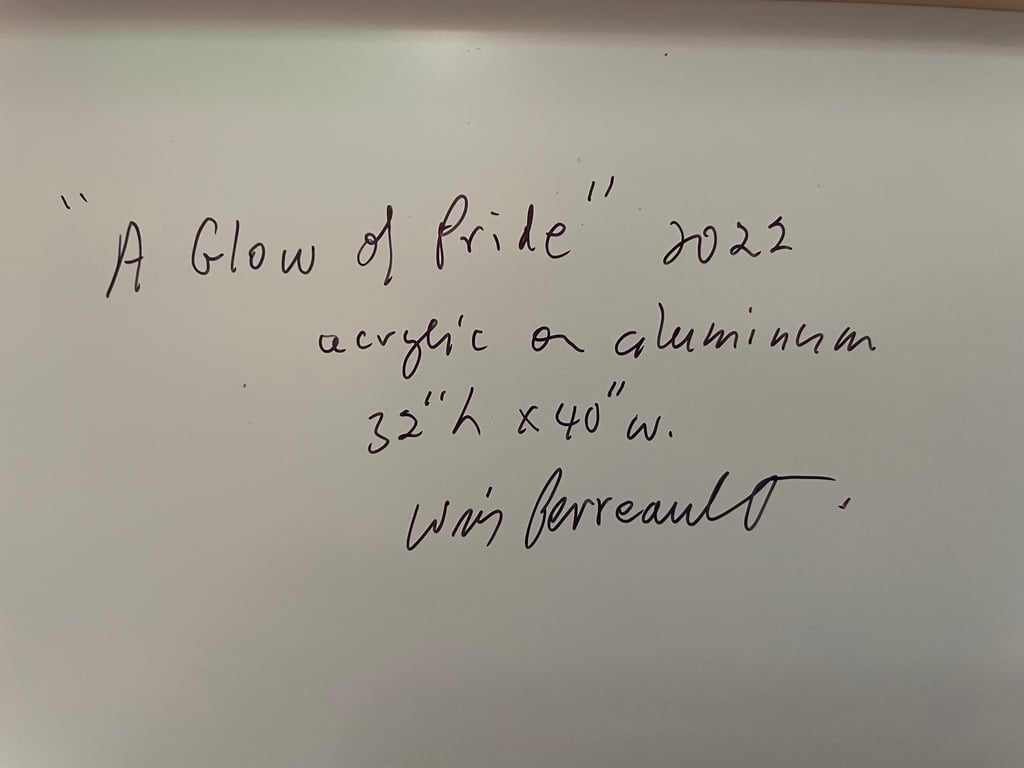 "A Glow of Pride" 2022
acrylic on aluminum
32"h x 40"w.
Perreault.